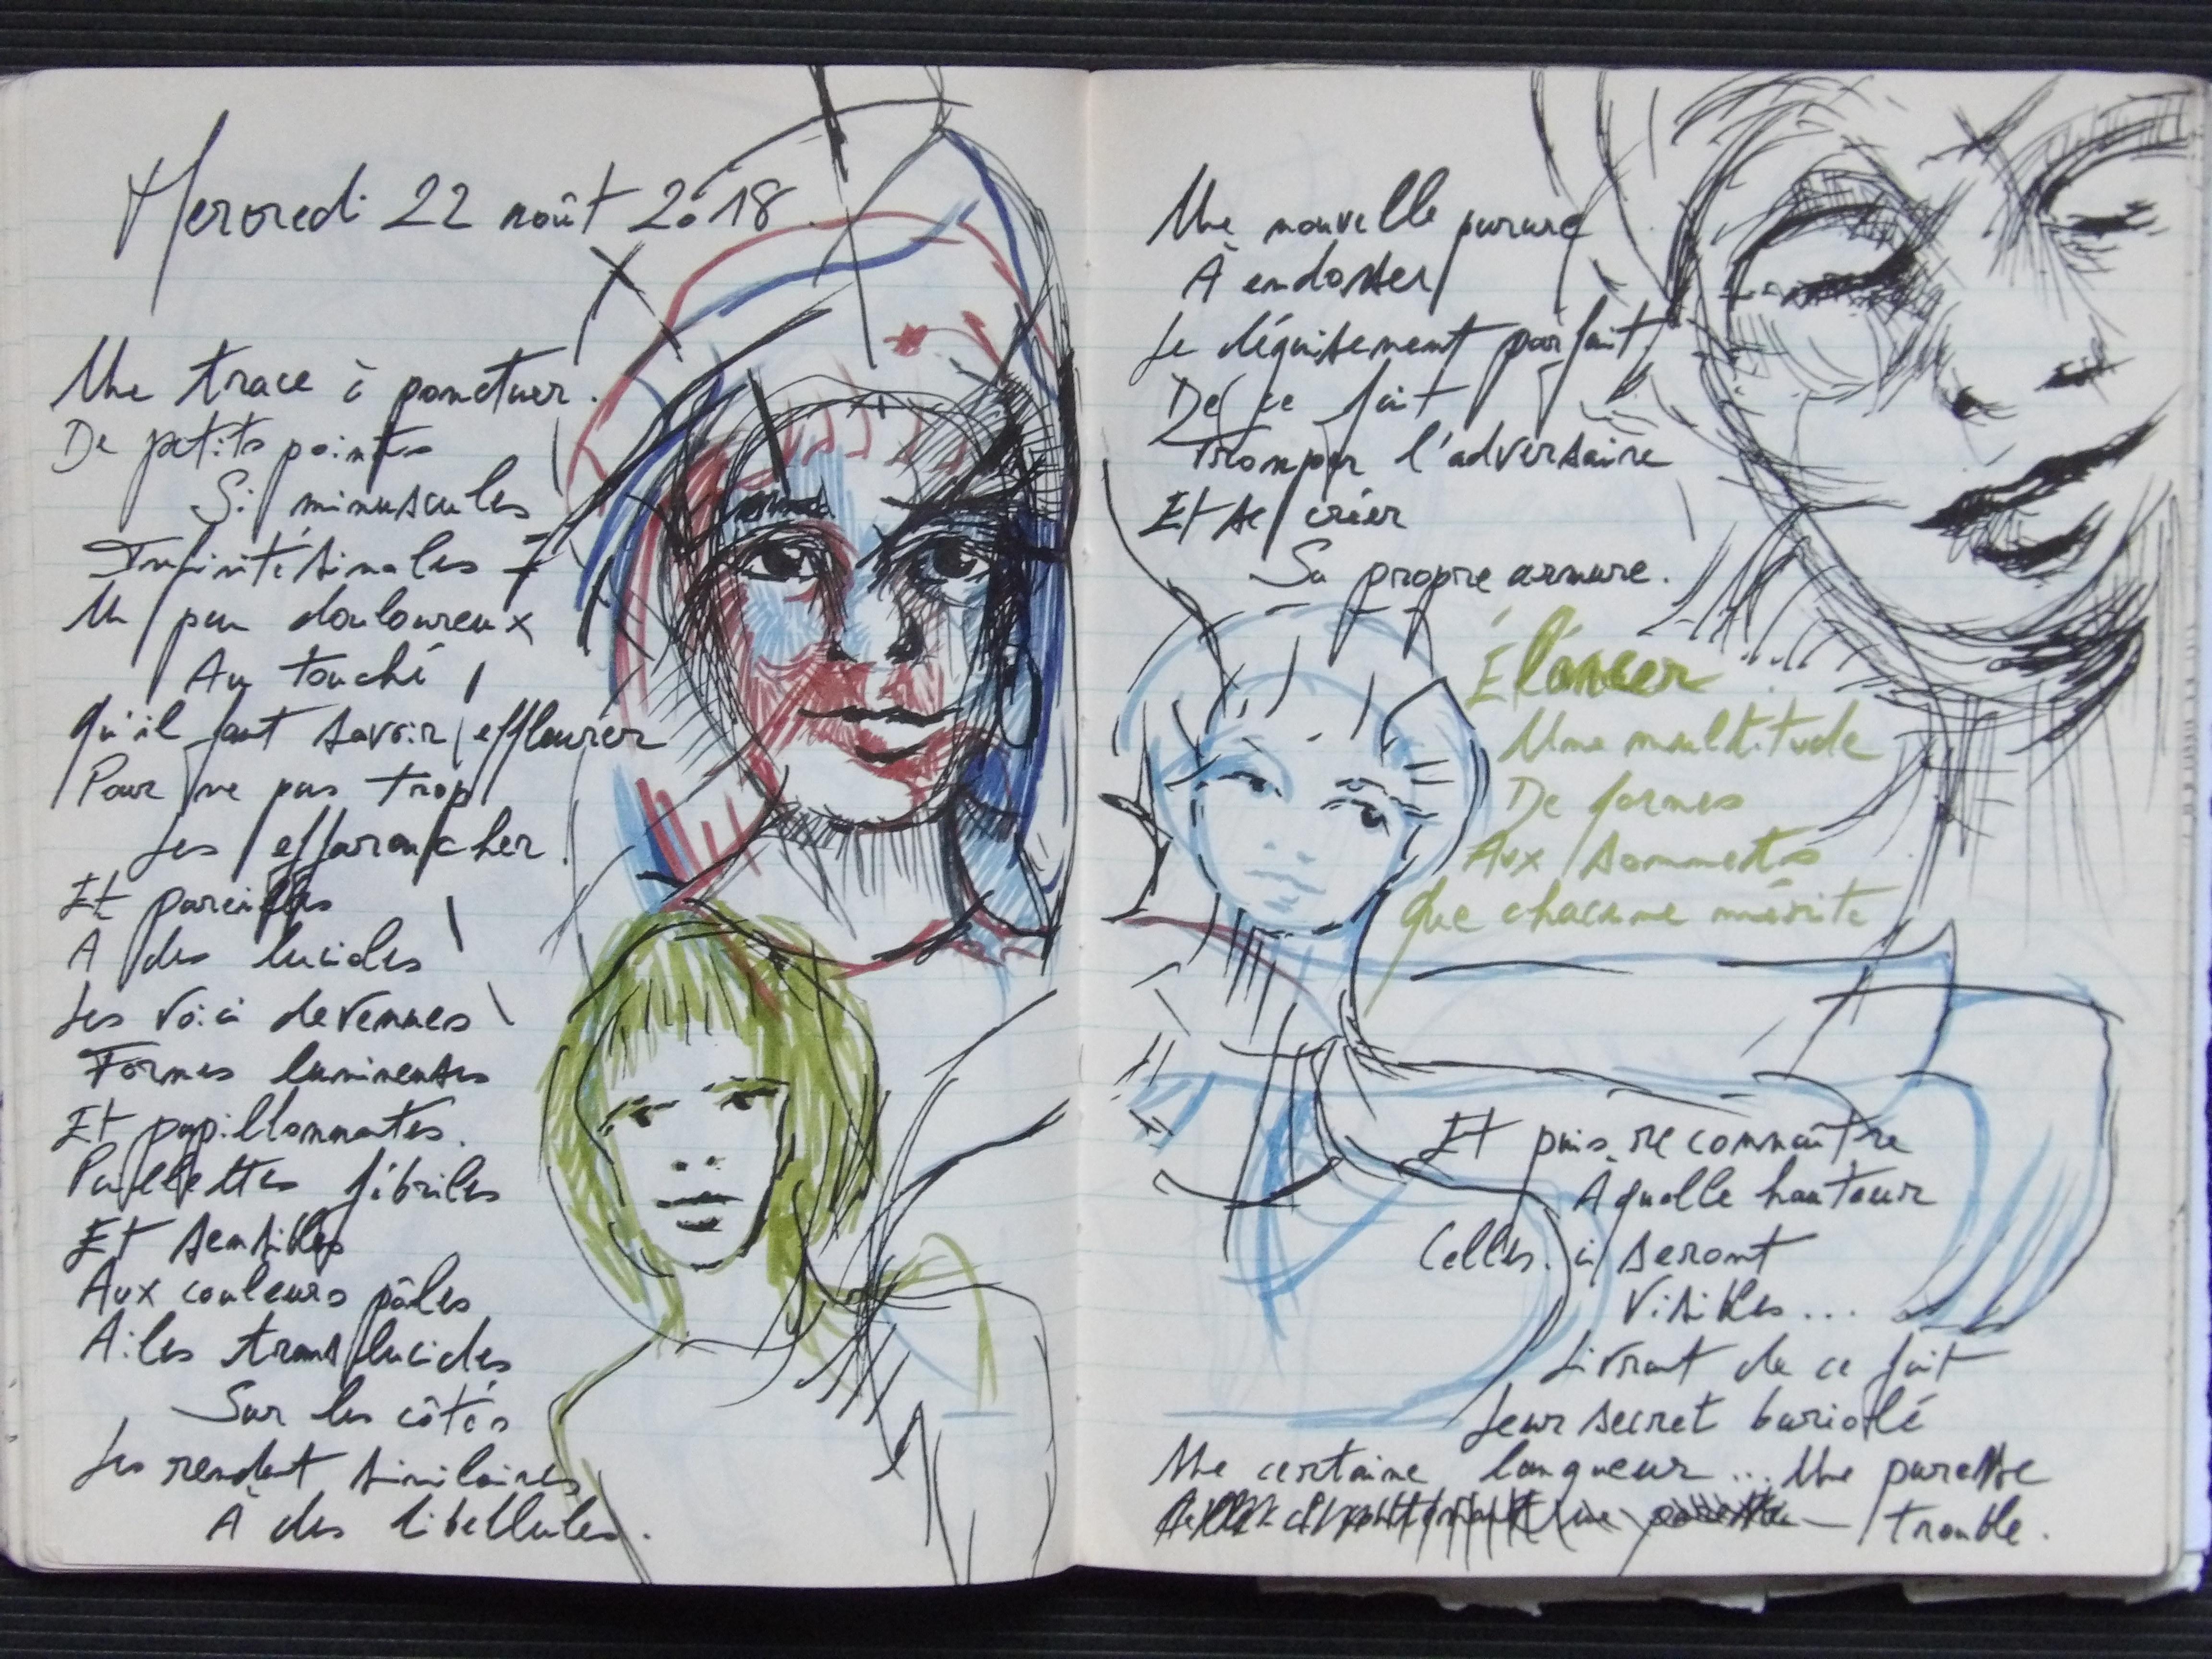 Mercredi 22 août 2018.
Une trace à ponctuer.
De petits points
Si minuscules
Infinitésimales
Un peu douloureux
Au touché
Qu'il faut savoir effleurer
Pour ne pas trop
Les effaroucher.
Et pareilles
A des lucides
Les voici devenues
Formes lumineuses
Et papillonnantes.
Paillettes fébriles
Et sensibles
Aux couleurs pâles
Ailes translucides
Sur les côtés
Les rendent similaires
A des libellules.
Une nouvelle parure
À endosser
Le déguisement parfait.
De ce fait
Tromper l'adversaire
Et se créer
Sa propre armure.
Élancer
Une multitude
De formes
Aux sommets
Que chacune mérite
Et puis reconnaître
A quelle hauteur
Celles-ci seront
Visibles...
Livrant de ce fait
Leur secret bariolé
Une certaine langueur... Une paresse
trouble.